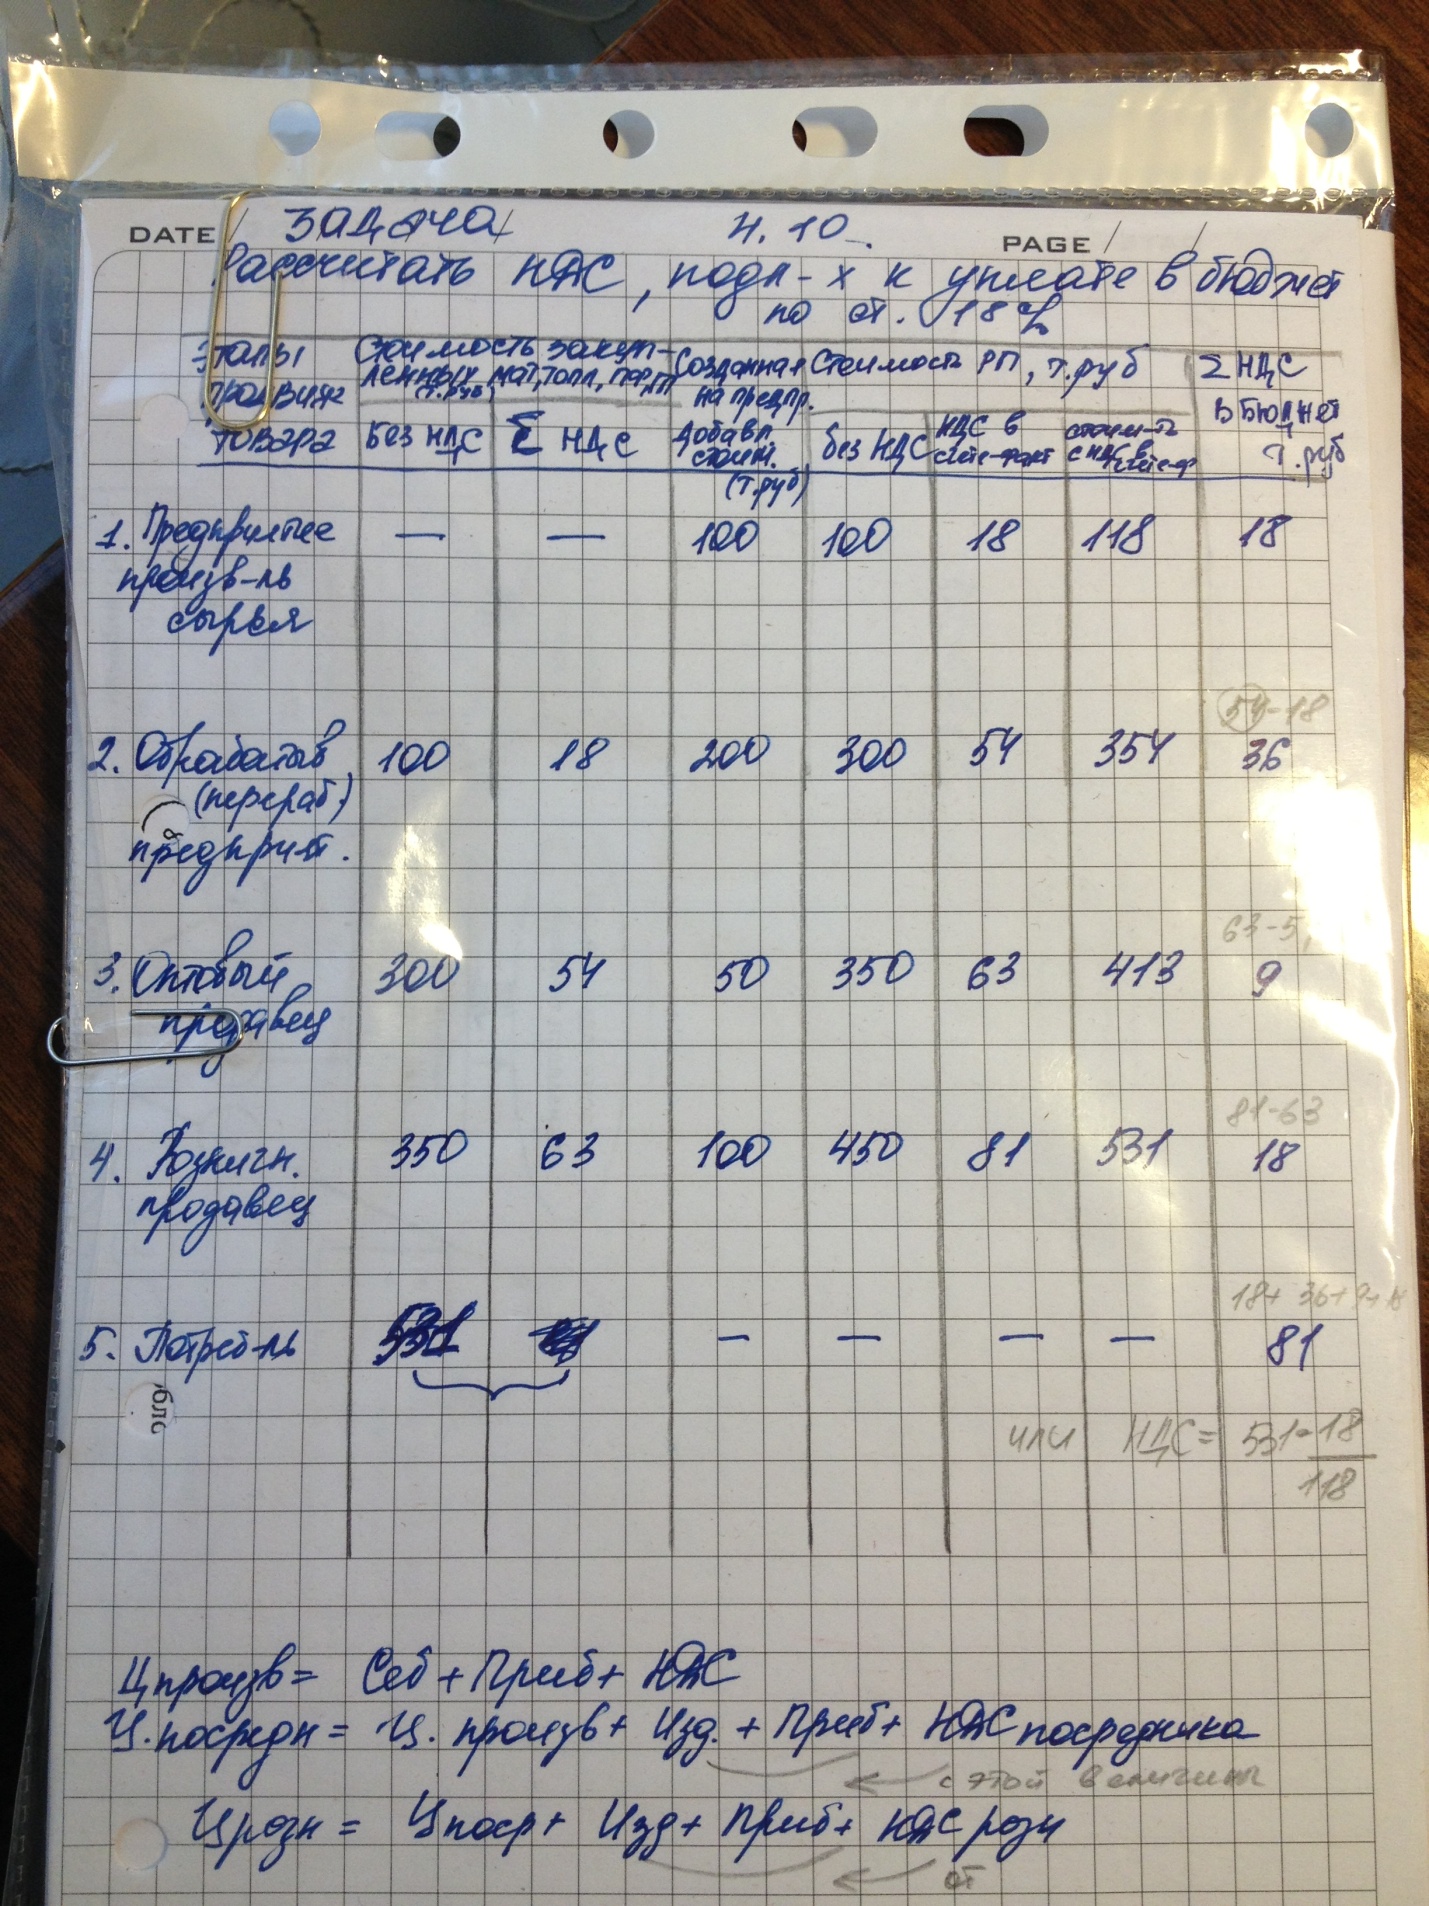 DATE / ЗАДАЧА / 4.10. PAGE / /
Рассчитать НДС, подл-х к уплате в бюджет
по ст. 18%
Этапы Стоимость закуп- Созданная Стоимость РП, т.руб Σ НДС
произв-ва ленных мат, топл, на предпр. в бюджет
(т.руб)
товара без НДС Σ НДС добавл. без НДС НДС в стоим-ть т.руб
стоим. счете-факт с НДС в счете-ф
(т.руб)
1. Предприятие — — 100 100 18 118 18
произв-ль
сырья
54-18
2. Обрабатыв 100 18 200 300 54 354 36
(перераб)
предприят.
63-5
3. Оптовый 300 54 50 350 63 413 9
продавец
81-63
4. Розничн. 350 63 100 450 81 531 18
продавец
18+36+9+18
5. Потреб-ль 531 — — — — 81
или НДС = 531·18
118
Ц произв = Себ + Приб + НДС
Ц. посредн = Ц. произв + Изд. + Приб + НДС посредника
← с этой величины
Ц розн = Ц поср + Изд + Приб + НДС розн
← от